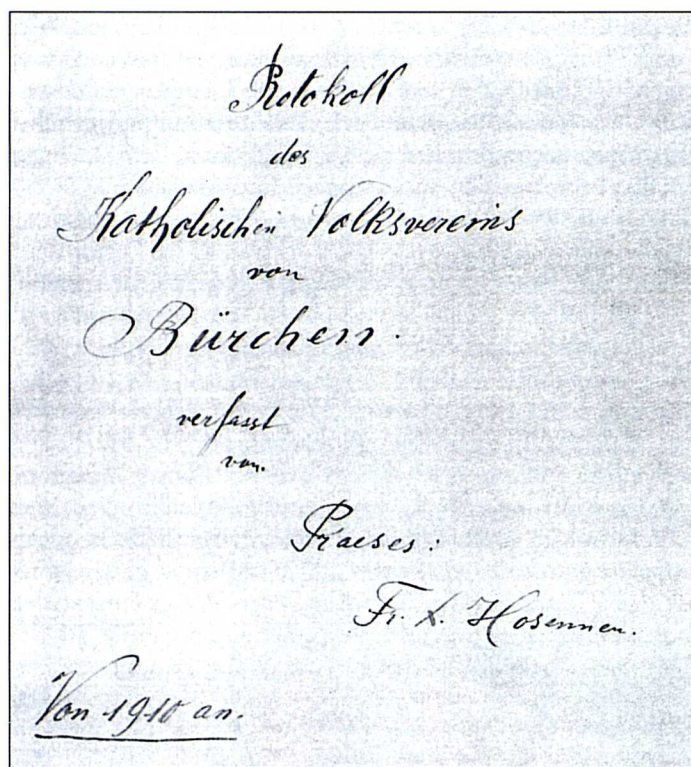 Protokoll
des
Katholischen Volksvereins
von
Bürchen.
verfasst
von.
Praeses:
Fr. X. Hosennen.
Von 1910 an.